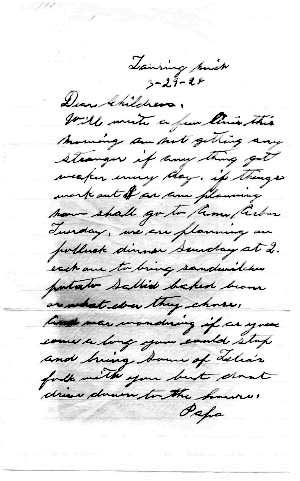 Lansing Mich
3-29-28
Dear Childrens,
Will write a few lines this
morning am not getting any
stronger if any thing get
weaker every day. if things
work out as am planning
now shall go to Ann Arbor
Tuesday, we are planning on
potluck dinner Sunday at 2.
each one to bring sandwiches
potato Sallid baked beans
or what ever they chose.
And was wondring if as you
come a long you could stop
and bring some of
folk with you but dont
drive down to the house.
Papa